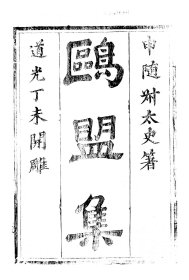 申随叔太史箸
鷗盟集
道光丁未開雕